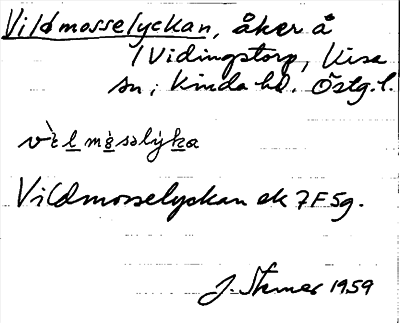 Vildmosselyckan, åker å
1 Vidingstorp, Kisa
sn, Kinda hd. Östg. l.
Vildmosselyckan ek 7F5g.
J. Stemer 1959